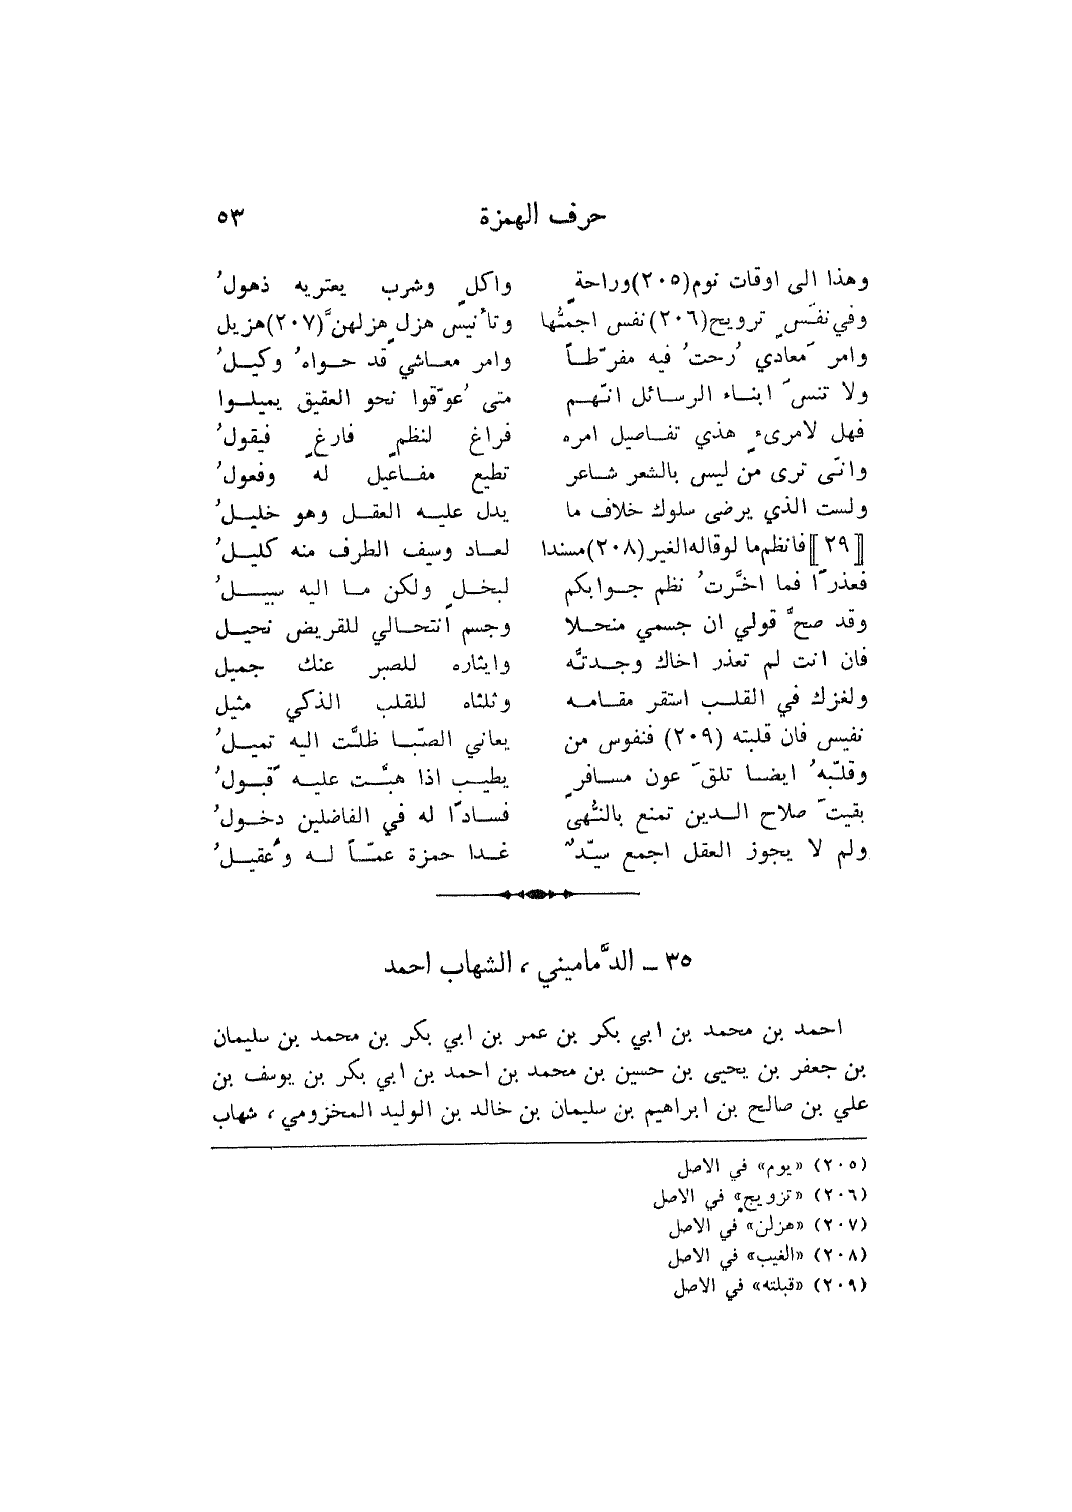 حرف الهمزة ٥٣
وهذا الى اوقات نوم(٢٠٥)وراحةٍ واكلٍ وشرب يعتريه ذهولُ
وفي نفَسٍ ترويح(٢٠٦)نفس اجمتُّها وتأنيس هزل هزلهنَّ(٢٠٧)هزيل
وامر مَعادي رُحت فيه مفرّطاً وامر معاشي قد حواهُ وكيلُ
ولا تنسَ ابناء الرسائل انّهم متى عُوّقوا نحو العقيق يميلوا
فهل لامرىءٍ هذي تفاصيل امره فراغ لنظمٍ فارغٍ فيقولُ
وانّى ترى من ليس بالشعر شاعر تطيع مفاعيل له وفعولُ
ولست الذي يرضى سلوك خلاف ما يدل عليه العقل وهو خليلُ
[٢٩] فانظم ما لو قاله الغير(٢٠٨)مسندا لعاد وسيف الطرف منه كليلُ
فعذراً فما اخَّرتُ نظم جوابكم لبخلٍ ولكن ما اليه سبيلُ
وقد صحَّ قولي ان جسمي منحلا وجسم انتحالي للقريض نحيل
فان انت لم تعذر اخاك وجدتَّه وايثاره للصبر عنك جميل
ولغزك في القلب استقر مقامه وثلثاه للقلب الذكي مثيل
نفيس فان قلبته (٢٠٩) فنفوس من يعاني الصبّا ظلَّت اليه تميلُ
وقلّبهُ ايضا تلقَ عون مسافرٍ يطيب اذا هبَّت عليه قَبولُ
بقيتَ صلاح الدين تمنع بالنُّهى فساداً له في الفاضلين دخولُ
ولم لا يجوز العقل اجمع سيّدٌ غدا حمزة عمّاً له وعَقيلُ
٣٥ ـ الدَّماميني ، الشهاب احمد
احمد بن محمد بن ابي بكر بن عمر بن ابي بكر بن محمد بن سليمان
بن جعفر بن يحيى بن حسين بن محمد بن احمد بن ابي بكر بن يوسف بن
علي بن صالح بن ابراهيم بن سليمان بن خالد بن الوليد المخزومي ، شهاب
(٢٠٥) «يوم» في الاصل
(٢٠٦) «تزويجٍ» في الاصل
(٢٠٧) «هزلن» في الاصل
(٢٠٨) «الغيب» في الاصل
(٢٠٩) «قبلته» في الاصل